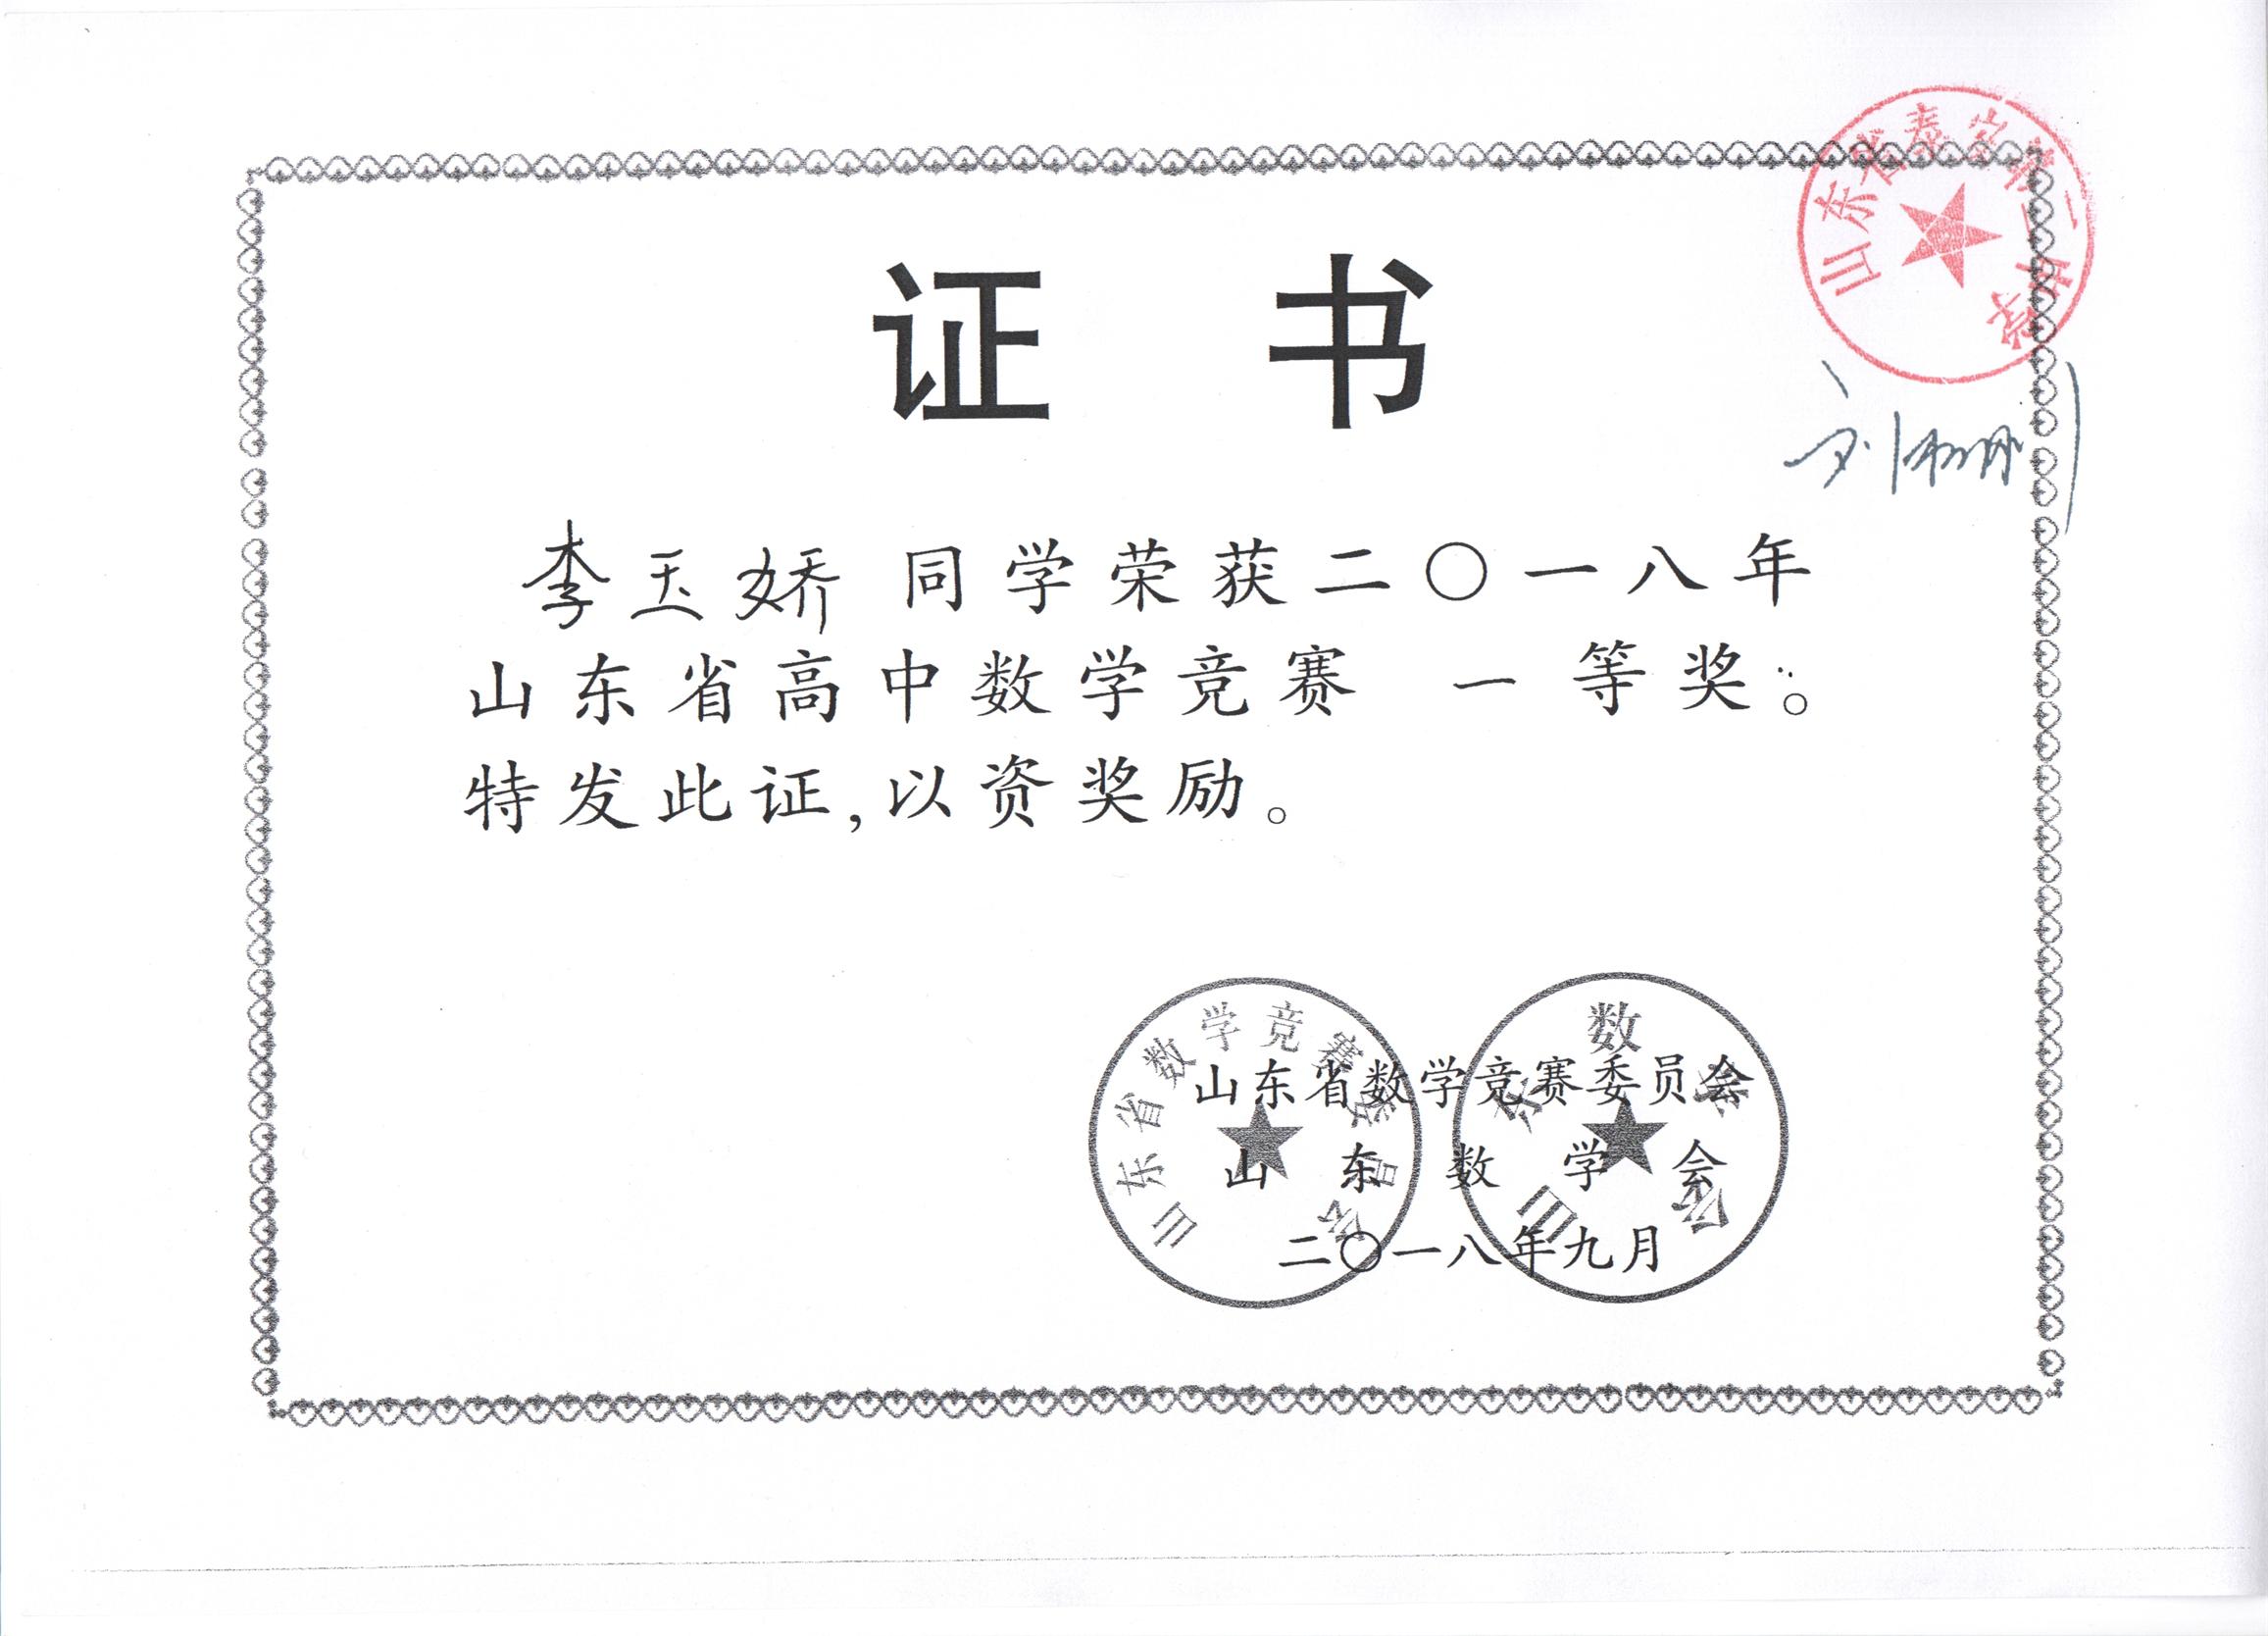 山东省泰安第二中学
证 书
李玉娇 同学荣获二〇一八年
山东省高中数学竞赛 一 等奖。
特发此证,以资奖励。
山东省数学竞赛委员会
山东数学会
山东省数学竞赛委员会
山 东 数 学 会
二〇一八年九月